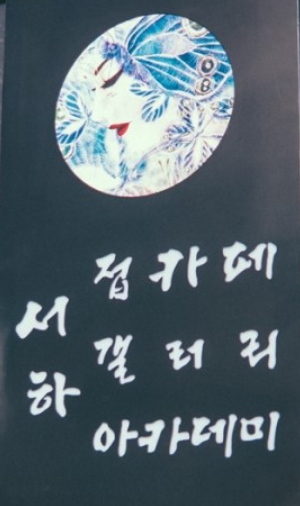 서하
접카페
갤러리
아카데미